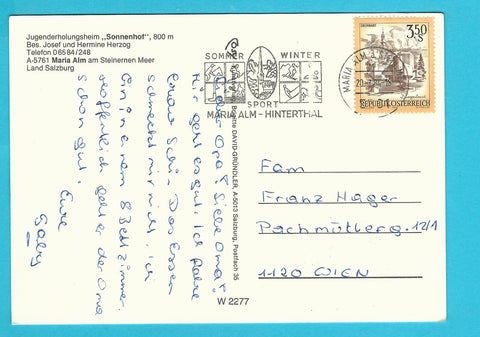 Jugenderholungsheim „Sonnenhof", 800 m
Bes. Josef und Hermine Herzog
Telefon 06584/248
A-5761 Maria Alm am Steinernen Meer
Land Salzburg
Lieber Opa! Liebe Oma!
Mir geht es gut. Ich fahre
schon Schi. Das Essen
schmeckt mir nicht. Ich
bin in einem 8 Bettzimmer.
Hoffentlich geht es der Oma
schon gut.
Eure
Gaby
DAVID-GRÜNDLER, A-5013 Salzburg, Postfach 35
W 2277
SOMMER WINTER
SPORT
MARIA ALM - HINTERTHAL
MARIA ALM
350
S
REPUBLIK ÖSTERREICH
Fam
Franz Hager
Pachmüllerg. 12/1
1120 WIEN